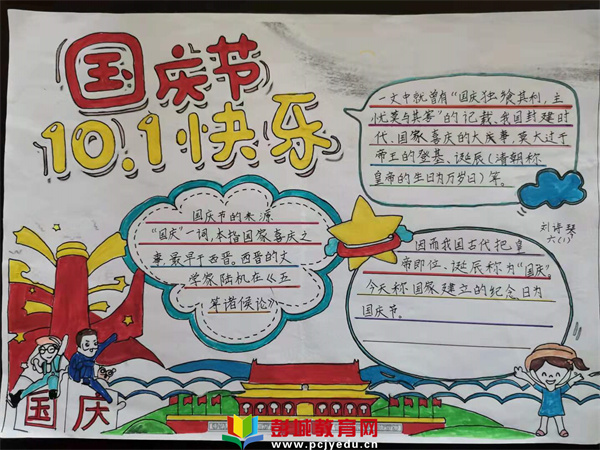 国庆节
10.1快乐
国庆节的来源
“国庆”一词，本指国家喜庆之
事最早于西晋。西晋的文
学家陆机在《五
等诸候论》
一文中就曾有“国庆独飨其利，主
忧莫与其害”的记载、我国封建时
代、国家喜庆的大庆事莫大过于
帝王的登基、诞辰（清朝称
皇帝的生日为万岁日）等。
六(1)
因而我国古代把皇
帝即位、诞辰称为“国庆”
今天称国家建立的纪念日为
国庆节。
国庆
彭城教育网
www.pcjyedu.cn